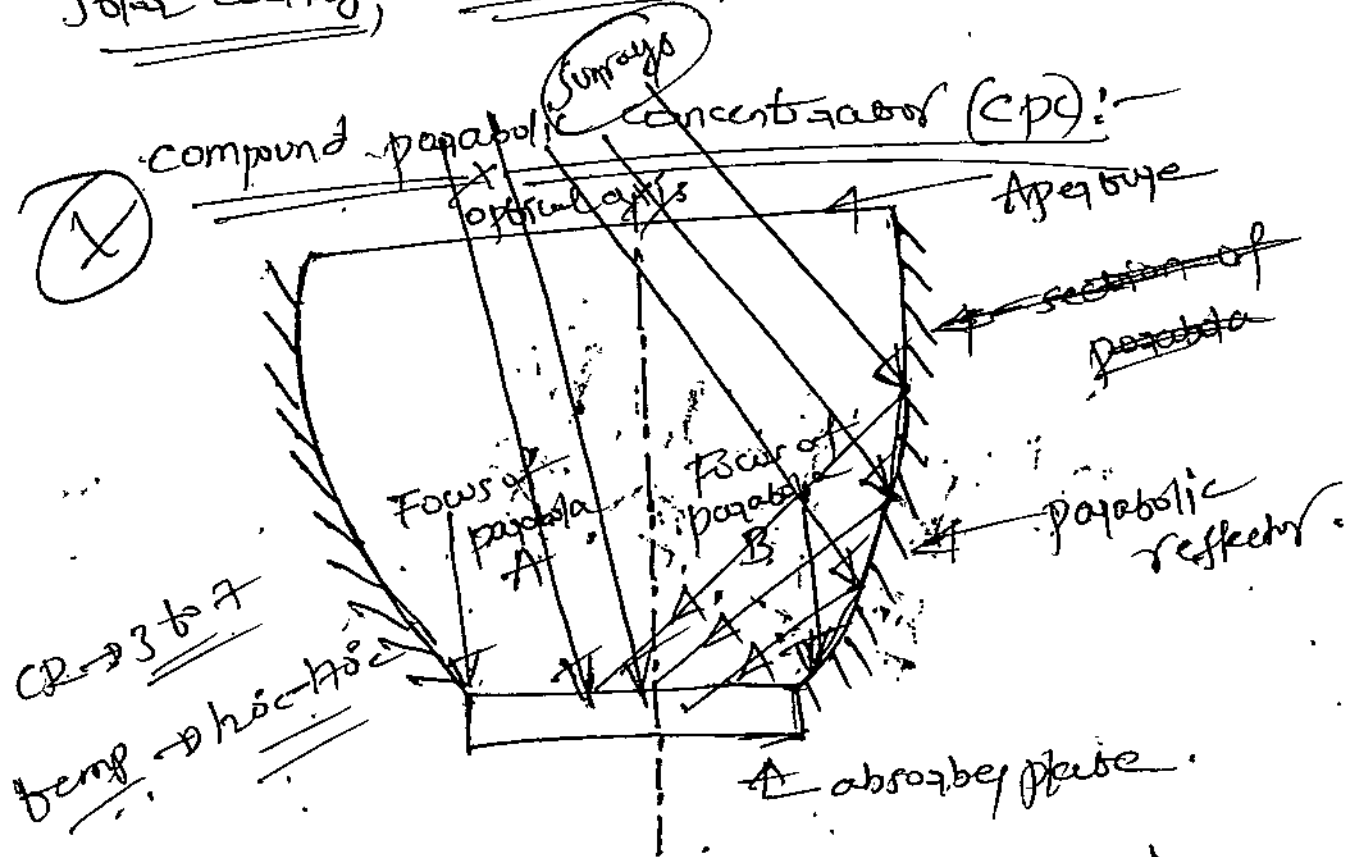 Solar
Sunrays
compound parabolic concentrator (CPC):-
X
optical axis
Aperture
section of
parabola
Focus of
parabola
A
Focus of
parabola
B
parabolic
reflector.
CR→3 to 7
temp →
absorber plate.